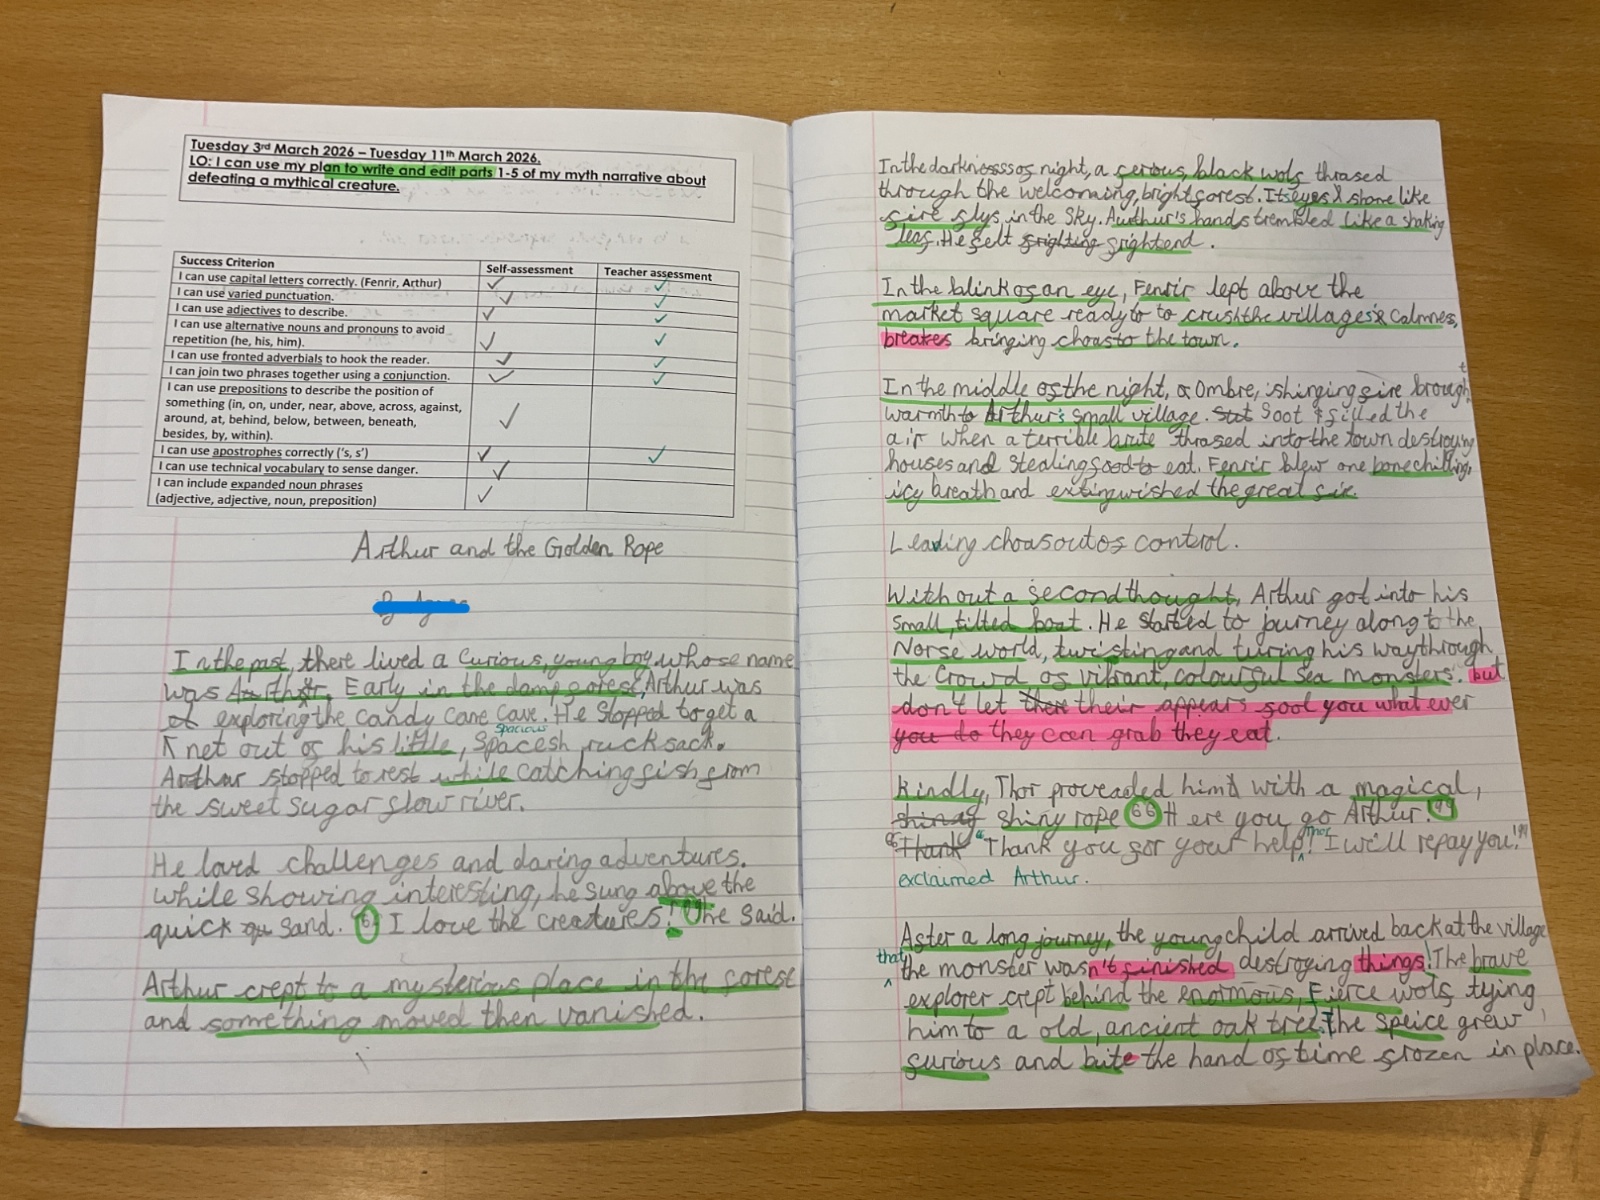 Tuesday 3rd March 2026 – Tuesday 11th March 2026.
LO: I can use my plan to write and edit parts 1-5 of my myth narrative about
defeating a mythical creature.
Success Criterion Self-assessment Teacher assessment
I can use capital letters correctly. (Fenrir, Arthur) ✓ ✓
I can use varied punctuation. ✓ ✓
I can use adjectives to describe. ✓ ✓
I can use alternative nouns and pronouns to avoid
repetition (he, his, him). ✓ ✓
I can use fronted adverbials to hook the reader. ✓ ✓
I can join two phrases together using a conjunction. ✓ ✓
I can use prepositions to describe the position of
something (in, on, under, near, above, across, against,
around, at, behind, below, between, beneath,
besides, by, within). ✓
I can use apostrophes correctly ('s, s') ✓ ✓
I can use technical vocabulary to sense danger. ✓
I can include expanded noun phrases
(adjective, adjective, noun, preposition) ✓
Arthur and the Golden Rope
In the past, there lived a Curious, young boy whose name
was Arthur. Early in the damp forest, Arthur was
exploring the candy cane cave. He stopped to get a
net out of his little, Spacesh rucksack.
Spacious
Arthur stopped to rest while catching fish from
the sweet sugar flow river.
He lovd challenges and daring adventures.
while showing interesting, he sung above the
quick sand. "I love the creatures!" he said.
Arthur crept to a mysterious place in the forest
and something moved then vanished.
In the darknessss of night, a ferious, black wolf thrased
through the welcoming, bright forest. Its eyes shone like
fire flys in the Sky. Aurthur's hands trembled like a shaking
leaf. He felt frighting frightend.
In the blink of an eye, Fenrir lept above the
market square ready to to crush the village's Calmnes,
breakes bringing choas to the town.
In the middle of the night, a Ombre, shinging fire brought
warmth to Arthur's small village. Soot filled the
air when a terrible brute thrased into the town destroying
houses and stealing food to eat. Fenrir blew one bonechilling,
icy breath and extingwished the great fire.
Leading choas out of control.
Without a second thought, Arthur got into his
small, tilted boat. He started to journey along to the
Norse world, twisting and turing his way through
the Crowd of vibrant, colourful sea monsters. but
don't let there their appears fool you what ever
you do they can grab they eat.
Kindly, Thor proveaded him with a magical,
shinay shiny rope "Here you go Arthur."
"Thank "Thank you for your help Thor! I we'll repay you!"
exclaimed Arthur.
After a long journey, the young child arrived back at the village
that the monster wasn't finished destroying things! The brave
explorer crept behind the enormous, Fierce wolf, tying
him to a old, ancient oak tree. The Speice grew
furious and bite the hand of time frozen in place.